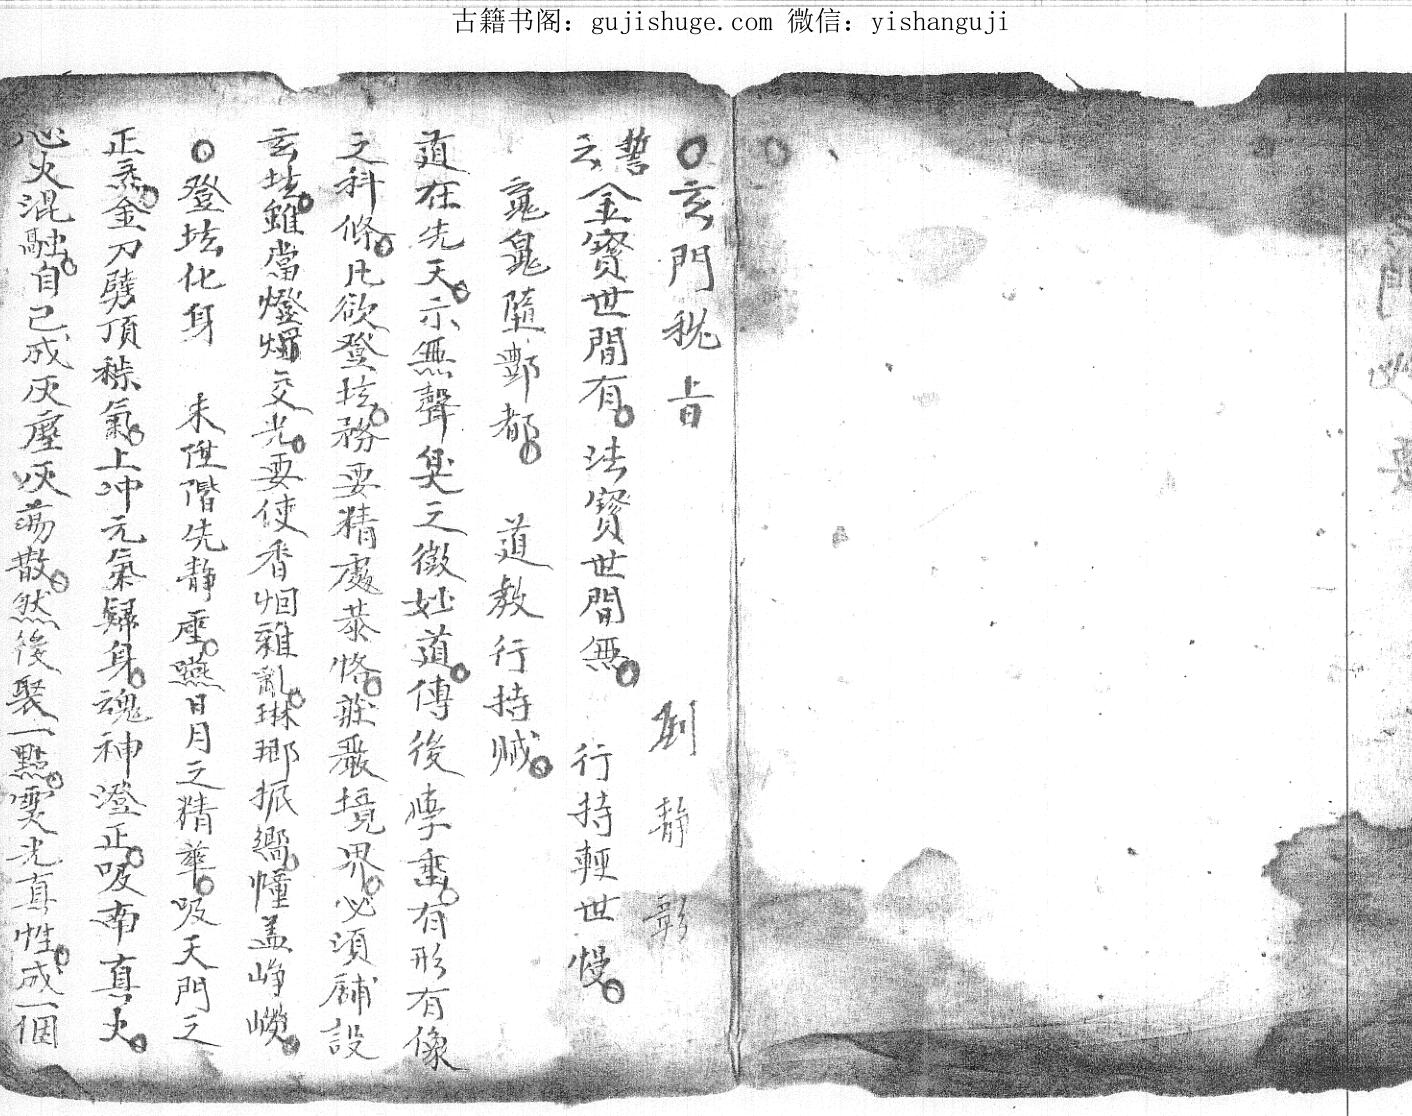 古籍书阁：gujishuge.com 微信：yishanguji
○玄門秘旨 劉靜彰
誓云 金寶世間有○法寶世間無○ 行持輕世慢○
竟墮酆都○ 道教行持賊○
道在先天○示無聲臭之微妙道○傳後學垂○有形有像
之科條○凡欲登坛○務要精處恭恪○莊嚴境界○必須鋪設
玄坛○雖當燈燭交光○要使香烟雜亂○琳瑯振嚮○幢盖峥嶸○
○登坛化身 未陞階先靜座○嚥日月之精華○吸天門之
正炁○金刀劈頂穢氣○上冲元氣歸身○魂神澄正○吸南真火○
心火混融○自己成灰塵吹荡散○然後聚一點○霊光真性○成一個
門